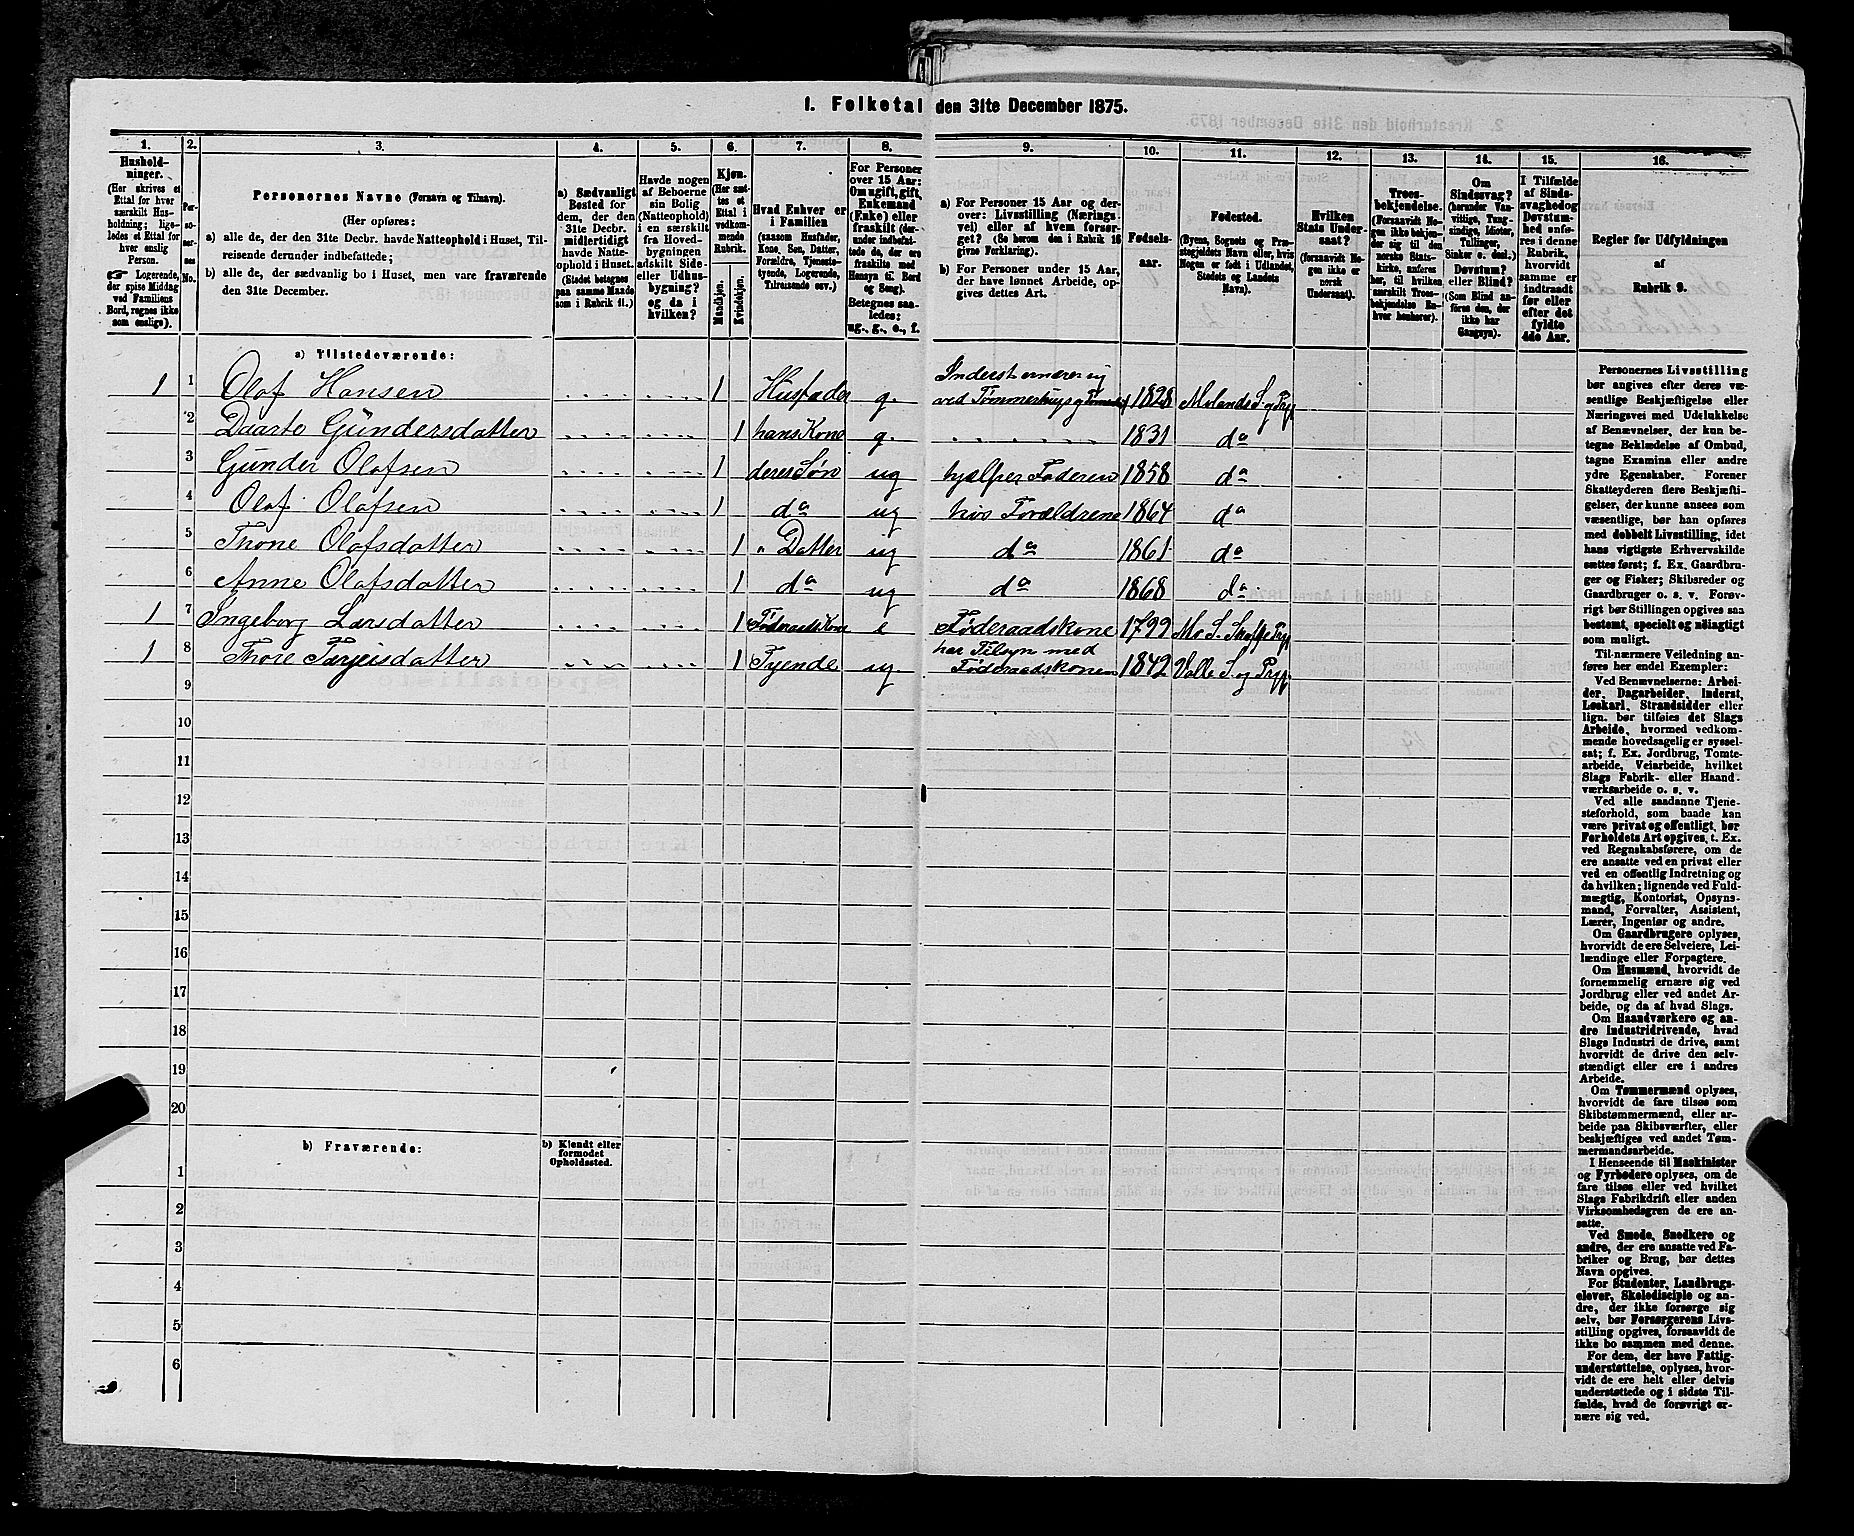 1. Folketal den 31te December 1875.
1. 2. 3. 4. 5. 6. 7. 8. 9. 10. 11. 12. 13. 14. 15. 16.
Hushold-
ninger.
(Her skrives et
Ettal for hver
særskilt Hus-
holdning; lige-
ledes et Ettal for
hver enslig
Person.
☞ Logerende,
der spise Middag
ved Familiens
Bord, regnes ikke
som enslige).
Per-
so-
ner-
nes
No.
Personernes Navne (Fornavn og Tilnavn).
(Her opføres:
a) alle de, der den 31te Decbr. havde Natteophold i Huset, Til-
reisende derunder indbefattede;
b) alle de, der sædvanlig bo i Huset, men vare fraværende
den 31te December.
a) Sædvanligt
Bosted for
dem, der den
31te Decbr.
midlertidigt
havde Natte-
ophold i Huset.
(Stedet betegnes
paa samme Maade
som i Rubrik 11.)
Havde nogen
af Beboerne
sin Bolig
(Natteophold)
i en særskilt
fra Hoved-
bygningen
adskilt Side-
eller Udhus-
bygning?
og da i
hvilken?
Kjøn.
(Her sæt-
tes et
Ettal i
vedkom-
mende
Rubrik.
Mandkjøn.
Kvindekjøn.
Hvad Enhver er
i Familien
(saasom Husfader,
Kone, Søn, Datter,
Forældre, Tjeneste-
tyende, Logerende,
Tilreisende osv.)
For Personer
over 15 Aar:
Om ugift, gift,
Enkemand
(Enke) eller
fraskilt (der-
under indbefat-
tede de, der ere
fraskilte med
Hensyn til Bord
og Seng).
Betegnes saa-
ledes:
ug., g., e., f.
a) For Personer 15 Aar og der-
over: Livsstilling (Nærings-
vei) eller af hvem forsør-
get? (Se herom den i Rubrik 16
givne Forklaring).
b) For Personer under 15 Aar,
der have lønnet Arbeide, op-
gives dettes Art.
Fødsels-
aar.
Fødested.
(Byens, Sognets og Præ-
stegjeldets Navn eller, hvis
Nogen er født i Udlandet,
Stedets og Landets
Navn).
Hvilken
Stats Under-
saat?
(forsaavidt No-
gen ikke er
norsk
Undersaat).
Troes-
bekjendelse.
(Forsaavidt No-
gen ikke bekjen-
der sig til den
norske Stats-
kirke, anføres
her, til hvilken
særskilt Troes-
bekjendelse En-
hver henhører).
Om
Sindssvag?
(herunder Van-
vittige, Tung-
sindige, Idioter,
Tullinger,
Sinker o. desl.)
Døvstum?
eller Blind?
(Som Blind an-
føres den, der
ikke har
Gangsyn).
I Tilfælde
af Sinds-
svaghed og
Døvstum-
hed anfø-
res i denne
Rubrik,
hvorvidt
samme er
indtraadt
før eller
efter det
fyldte
4de Aar.
Regler for Udfyldningen
af
Rubrik 9.
a) Tilstedeværende:
1 1 Olaf Hansen 1 Husfader g. Inderst ernærer sig ved Tømmerhugst 1828 Molands S. og Prgj.
2 Daarte Gundersdatter 1 hans Kone g. 1831 do
3 Gunder Olafsen 1 deres Søn ug hjælper Faderen 1858 do
4 Olaf Olafsen 1 do ug hos Forældrene 1864 do
5 Thone Olafsdatter 1 " Datter ug do 1861 do
6 Anne Olafsdatter 1 do ug do 1868 do
1 7 Ingeborg Larsdatter 1 Føderaadskone e Føderaadskone 1799 Mo S. Prgj
1 8 Thore Tarjeisdatter 1 Tyende ug. har Tilsyn med Føderaadskonen 1842 Valle S. og Prgj.
9
10
11
12
13
14
15
16
17
18
19
20
b) Fraværende:
b) Kjendt eller
formodet
Opholdssted.
1
2
3
4
5
6
Personernes Livsstilling
bør angives efter deres væ-
sentlige Beskjæftigelse eller
Næringsvei med Udelukkelse
af Benævnelser, der kun be-
tegne Beklædelse af Ombud,
tagne Examina eller andre
ydre Egenskaber. Forener
Skatteyderen flere Beskjæfti-
gelser, der kunne ansees som
væsentlige, bør han opføres
med dobbelt Livsstilling, idet
hans vigtigste Erhvervskilde
sættes først; f. Ex. Gaardbru-
ger og Fisker; Skibsreder og
Gaardbruger o. s. v. Forøv-
rigt bør Stillingen opgives saa
bestemt, specielt og nøiagtigt
som muligt.
Til nærmere Veiledning an-
føres her endel Exempler:
Ved Benævnelserne: Arbei-
der, Dagarbeider, Inderst,
Løskarl, Strandsidder eller
lign. bør tilføies det Slags
Arbeide, hvormed vedkom-
mende hovedsagelig er syssel-
sat; f. Ex. Jordbrug, Tomte-
arbeide, Veiarbeide, hvilket
Slags Fabrik- eller Haand-
værksarbeide o. s. v.
Ved alle saadanne Tjene-
steforhold, som baade kan
være privat og offentligt, bør
Forholdets Art opgives, t. Ex.
ved Regnskabsførere, om de
ere ansatte ved en privat eller
ved en offentlig Indretning og
da hvilken; lignende ved Fuld-
mægtig, Kontorist, Opsyns-
mand, Forvalter, Assistent,
Lærer, Ingeniør og andre.
Om Gaardbrugere oplyses,
hvorvidt de ere Selveiere, Lei-
lændinge eller Forpagtere.
Om Husmænd, hvorvidt de
fornemmelig ernære sig ved
Jordbrug eller ved andet Ar-
beide, og da af hvad Slags.
Om Haandværkere og an-
dre Industridrivende, hvad
Slags Industri de drive, samt
hvorvidt de drive den selv-
stændigt eller ere i andres
Arbeide.
Om Tømmermænd oplyses,
hvorvidt de fare tilsøs som
Skibstømmermænd, eller ar-
beide paa Skibsværfter, eller
beskjæftiges ved andet Tøm-
mermandsarbeide.
I Henseende til Maskinister
og Fyrbødere oplyses, om de
fare tilsøs eller ved hvilket
Slags Fabrikdrift eller anden
Virksomhedsgren de ere an-
satte.
Ved Smede, Snedkere og
andre, der ere ansatte ved Fa-
briker og Brug, bør dettes
Navn opgives.
For Studenter, Landbrugs-
elever, Skoledisciple og an-
dre, der ikke forsørge sig
selv, bør Forsørgerens Livs-
stilling opgives, forsaavidt de
ikke bo sammen med denne.
For dem, der have Fattig-
understøttelse, oplyses, hvor-
vidt de ere helt eller delvis
understøttede og i sidste Til-
fælde, hvad de forøvrigt er-
nære sig ved.